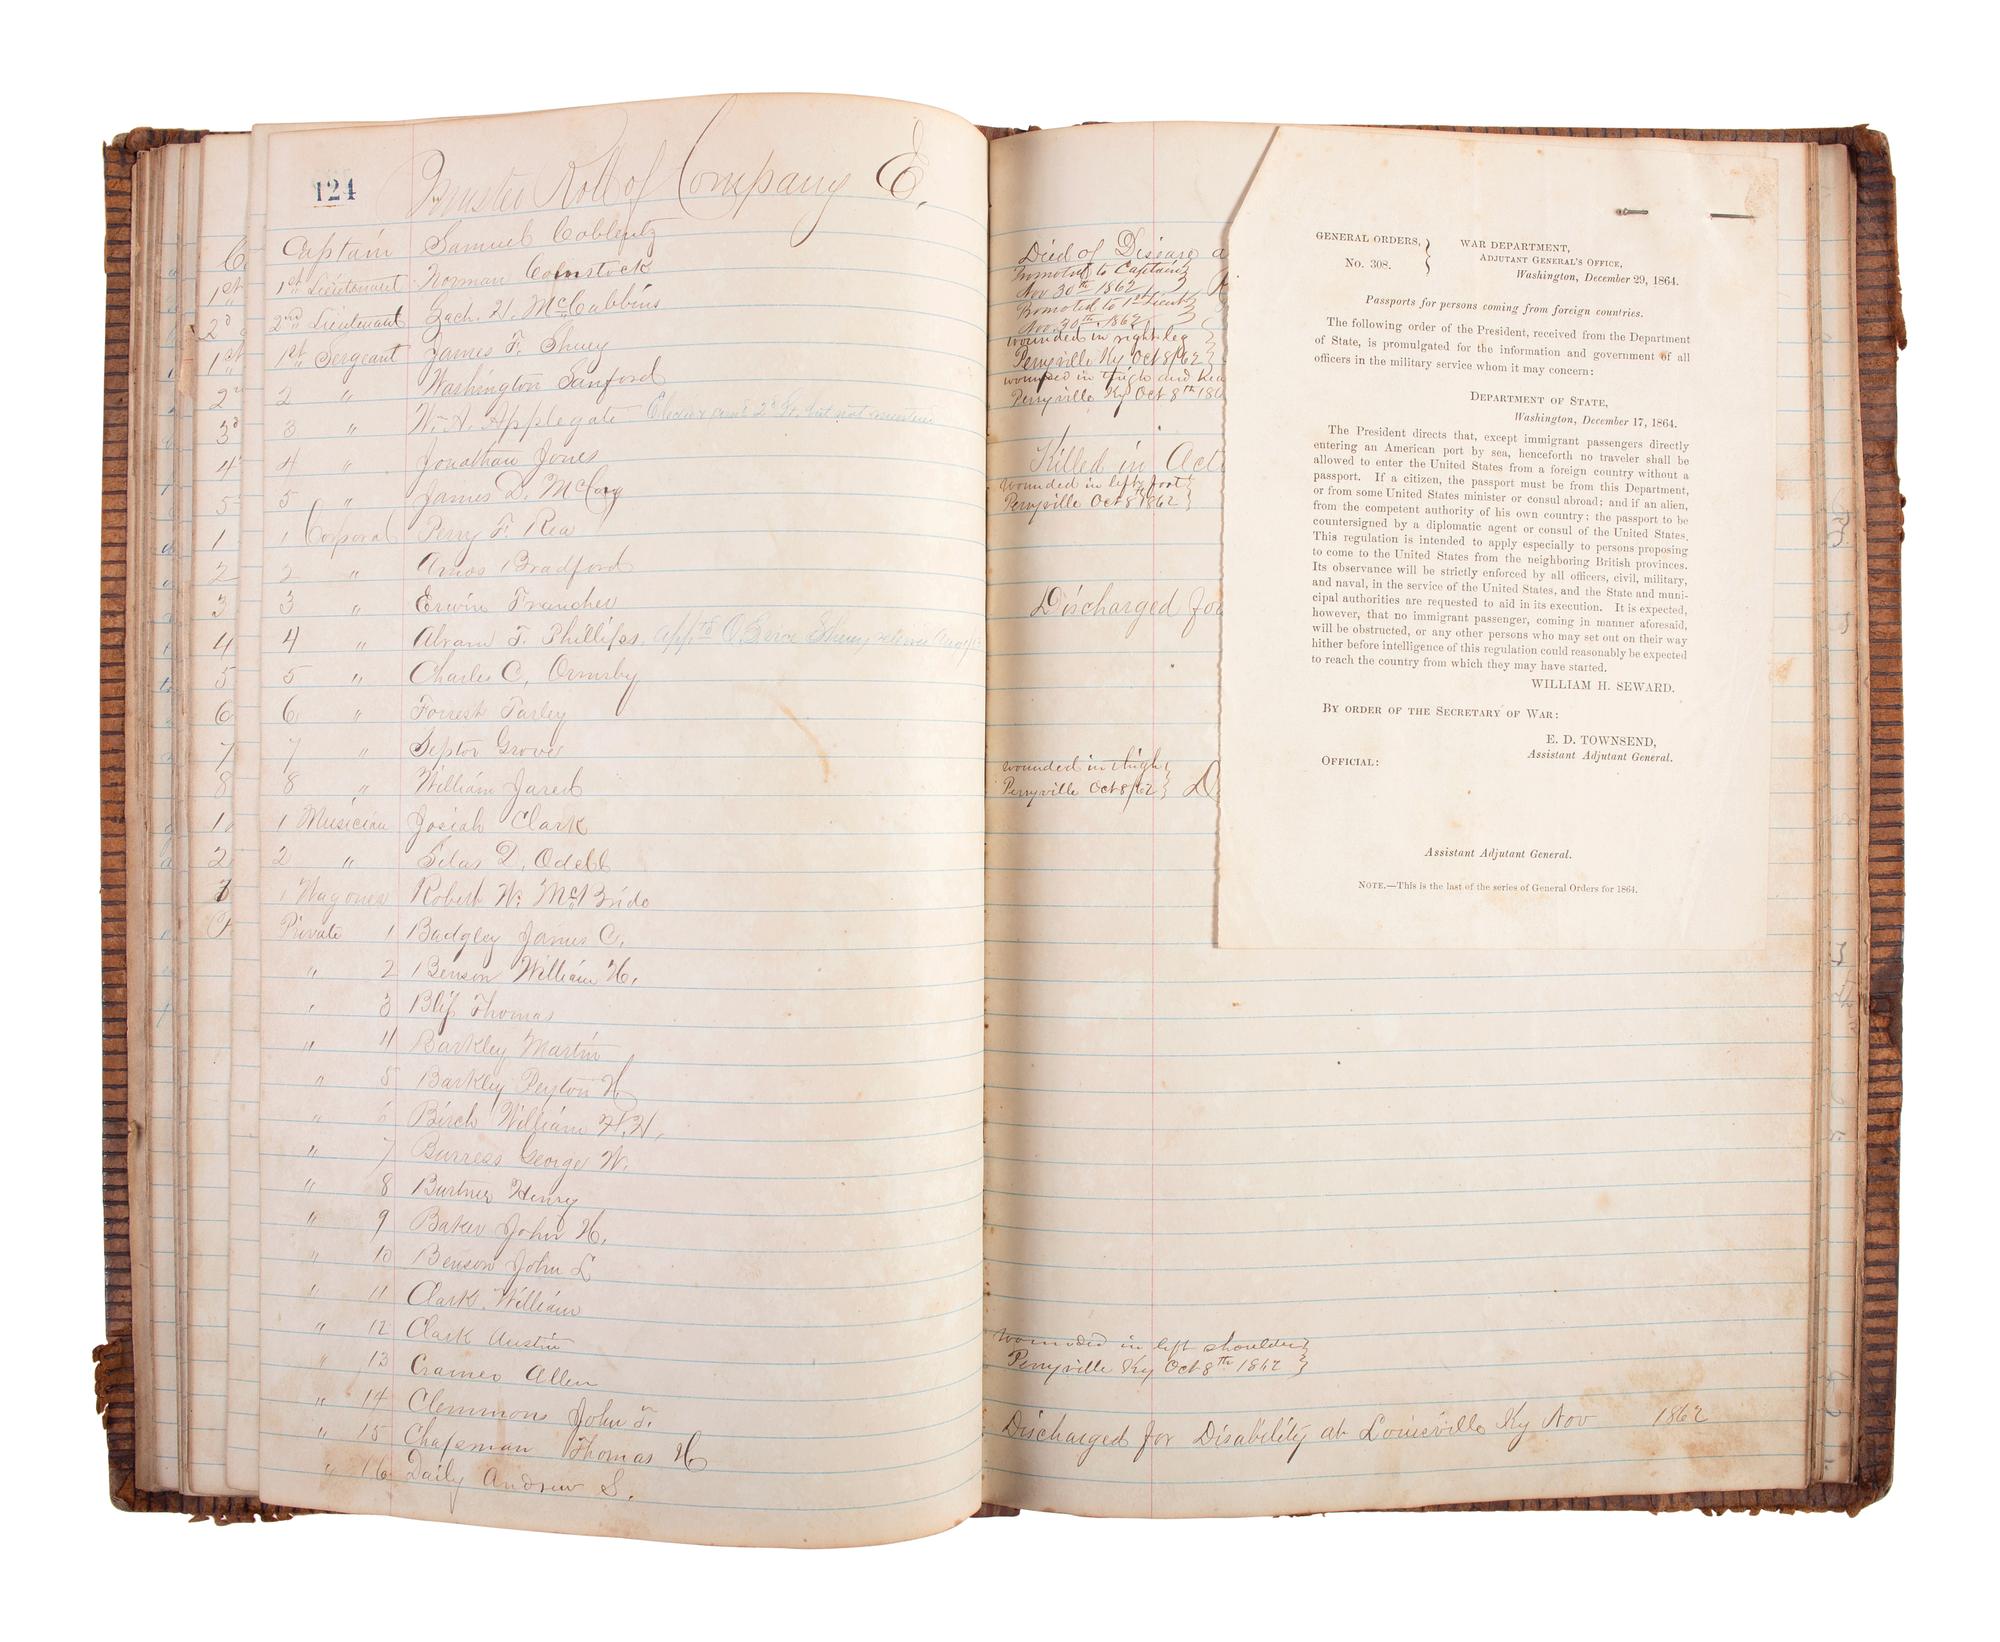 124
Muster Roll of Company E.
Captain Samuel Coblentz
1st Lieutenant Norman Comstock
2nd Lieutenant Zach. H. McCabbins
1st Sergeant James F. Shuey
2 " Washington Sanford
3 " W. A. Applegate but not
4 " Jonathan Jones
5 " James D. McCoy
1 Corporal Perry F. Rea
2 " Amos Bradford
3 " Erwin Francher
4 " Abram F. Phillips
5 " Charles C. Ormsby
6 " Forrest Farley
7 " Septor Grover
8 " William Jared
1 Musician Josiah Clark
2 " Silas D. Odell
1 Wagoner Robert W. McBride
Private 1 Badgley James C.
" 2 Benson William H.
" 3 Blip Thomas
" 4 Barkley Martin
" 5 Barkley Peyton H
" 6 Birch William H. H.
" 7 Burress George W.
" 8 Burtner Henry
" 9 Baker John H.
" 10 Benson John L
" 11 Clark William
" 12 Clark Austin
" 13 Cramer Allen
" 14 Clemmons John F.
" 15 Chapman Thomas H
" 16 Daily Andrew S.
1st
2d
1st
3d
4
5
1
2
3
4
5
6
7
8
1
2
Died of Disease a
Promoted to Captain
Nov 30th 1862
Promoted to 1st Lieut
Nov. 30th 1862
wounded in right leg
Perryville Ky Oct 8/62
wounded in thigh and
Perryville Ky Oct 8th 186
Killed in Acti
wounded in left foot
Perryville Oct 8th 1862
Discharged for
wounded in thigh
Perryville Oct 8/62 D
wounded in left shoulder
Perryville Ky Oct 8th 1862
Discharged for Disability at Louisville Ky Nov 1862
GENERAL ORDERS,
No. 308.
WAR DEPARTMENT,
ADJUTANT GENERAL'S OFFICE,
Washington, December 29, 1864.
Passports for persons coming from foreign countries.
The following order of the President, received from the Department
of State, is promulgated for the information and government of all
officers in the military service whom it may concern:
DEPARTMENT OF STATE,
Washington, December 17, 1864.
The President directs that, except immigrant passengers directly
entering an American port by sea, henceforth no traveler shall be
allowed to enter the United States from a foreign country without a
passport. If a citizen, the passport must be from this Department,
or from some United States minister or consul abroad; and if an alien,
from the competent authority of his own country; the passport to be
countersigned by a diplomatic agent or consul of the United States.
This regulation is intended to apply especially to persons proposing
to come to the United States from the neighboring British provinces.
Its observance will be strictly enforced by all officers, civil, military,
and naval, in the service of the United States, and the State and muni-
cipal authorities are requested to aid in its execution. It is expected,
however, that no immigrant passenger, coming in manner aforesaid,
will be obstructed, or any other persons who may set out on their way
hither before intelligence of this regulation could reasonably be expected
to reach the country from which they may have started.
WILLIAM H. SEWARD.
BY ORDER OF THE SECRETARY OF WAR:
E. D. TOWNSEND,
Assistant Adjutant General.
OFFICIAL:
Assistant Adjutant General.
NOTE.—This is the last of the series of General Orders for 1864.